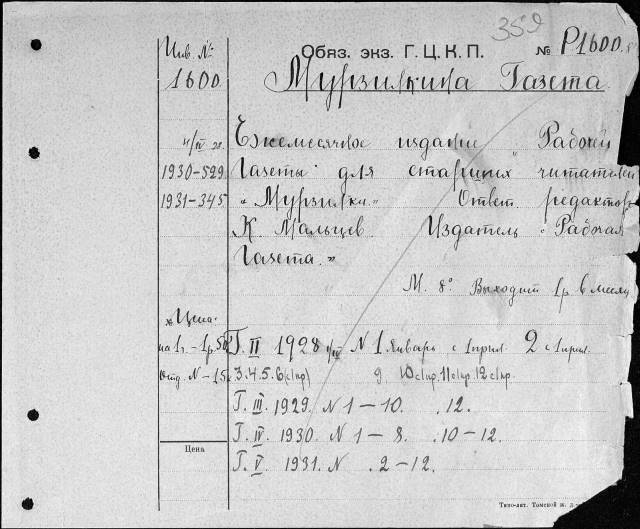 359
Инв. №
1600
Обяз. экз. Г. Ц. К. П.
№ Р1600.
Мурзилкина Газета.
Ежемесячное издание „Рабочей
Газеты" для старших читателей
„Мурзилки." Ответ. редактор
К. Мальцев Издатель „Рабочая
Газета."
1930-529
1931-345
М. 8° Выходит 1 р в месяц
Цена
на 1 г. - 1 р. 50
Отд. № - 15 к
Г. II 1928 № 1 Январь с 1 прил. 2 с 1 прил.
3. 4. 5. 6 (с 1 пр) 9 10 с 1 пр. 11 с 1 пр. 12 с 1 пр.
Г. III. 1929. № 1 - 10. . 12.
Г. IV. 1930. № 1 - 8. . 10 - 12.
Г. V. 1931. № . 2 - 12.
Цена
Типо-лит. Томской ж. д.